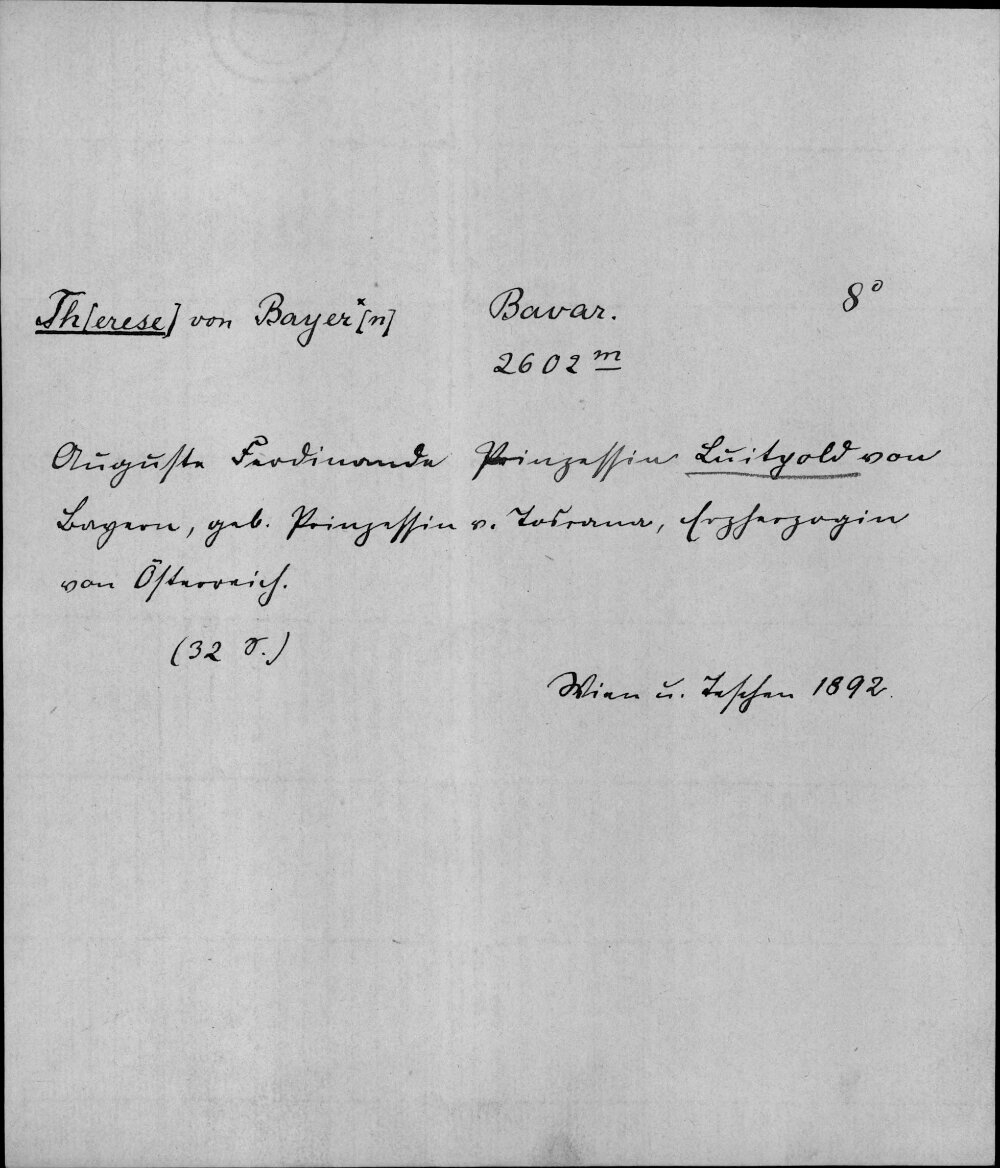 Th[erese] von Bayer*[n] Bavar. 8°
2602 m
Auguste Ferdinande Prinzessin Luitpold von
Bayern, geb. Prinzessin v. Toscana, Erzherzogin
von Österreich.
(32 S.)
Wien u. Teschen 1892.